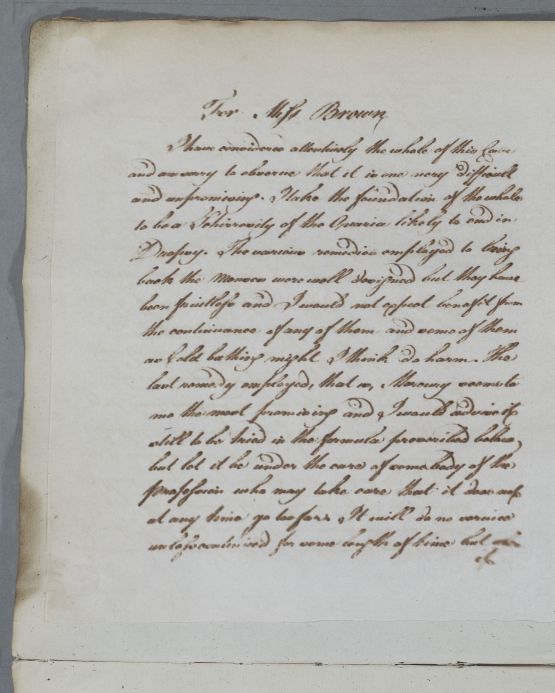 For Miss Brown
I have considered attentively the whole of this Case
and am sorry to observe that it is one very difficult
and unpromising. I take the foundation of the whole
to be a Schirrosity of the Ovaria likely to end in
Dropsy. The various remedies employed to bring
back the Menses were well designed but they have
been fruitless and I would not expect benefit from
the continuance of any of them and some of them
as Cold bathing might I think do harm. The
last remedy employed, that is, Mercury seems to
me the most promising and I would advise it
still to be tried in the formula prescribed below,
but let it be under the care of some body of the
profession who may take care that it does not
at any time go too far. It will do no service
unless continued for some length of time but
it